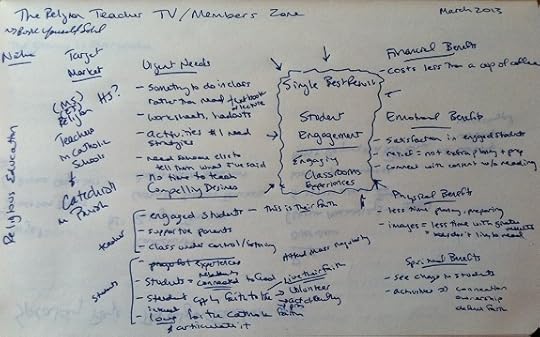 The Religion Teacher TV/Members Zone
March 2013
Book Yourself Solid
Niche
Religious Education
Target
Market
(MS)
HS?
Religion
Teachers
in Catholic
Schools
&
Catechists
in Parish
Urgent Needs
- Something to do in class
rather than read textbook
or lecture
- worksheets, handouts
- activities &
strategies
I need
- need someone else to
tell them what I've said
- no time to teach
Compelling Desires
teacher
- engaged students - this is their faith
- supportive parents
- class under control / listening
Attend Mass regularly
students
- prayerful experiences
- students' relationship connected to God
- student apply faith to life
Live their Faith
volunteer
- love for the Catholic Faith
& articulate it
Single Best Result
Student
Engagement
Engaging
Classrooms
Experiences
Financial Benefits
- costs less than a cup of coffee
Emotional Benefits
- satisfaction in engaged students
- relief = not extra planning + prep
- connect with content w/o reading
Physical Benefits
- less time planning, preparing
- images = less time with greater
results
Spiritual Benefits
- see change in students
- activities → connection
ownership